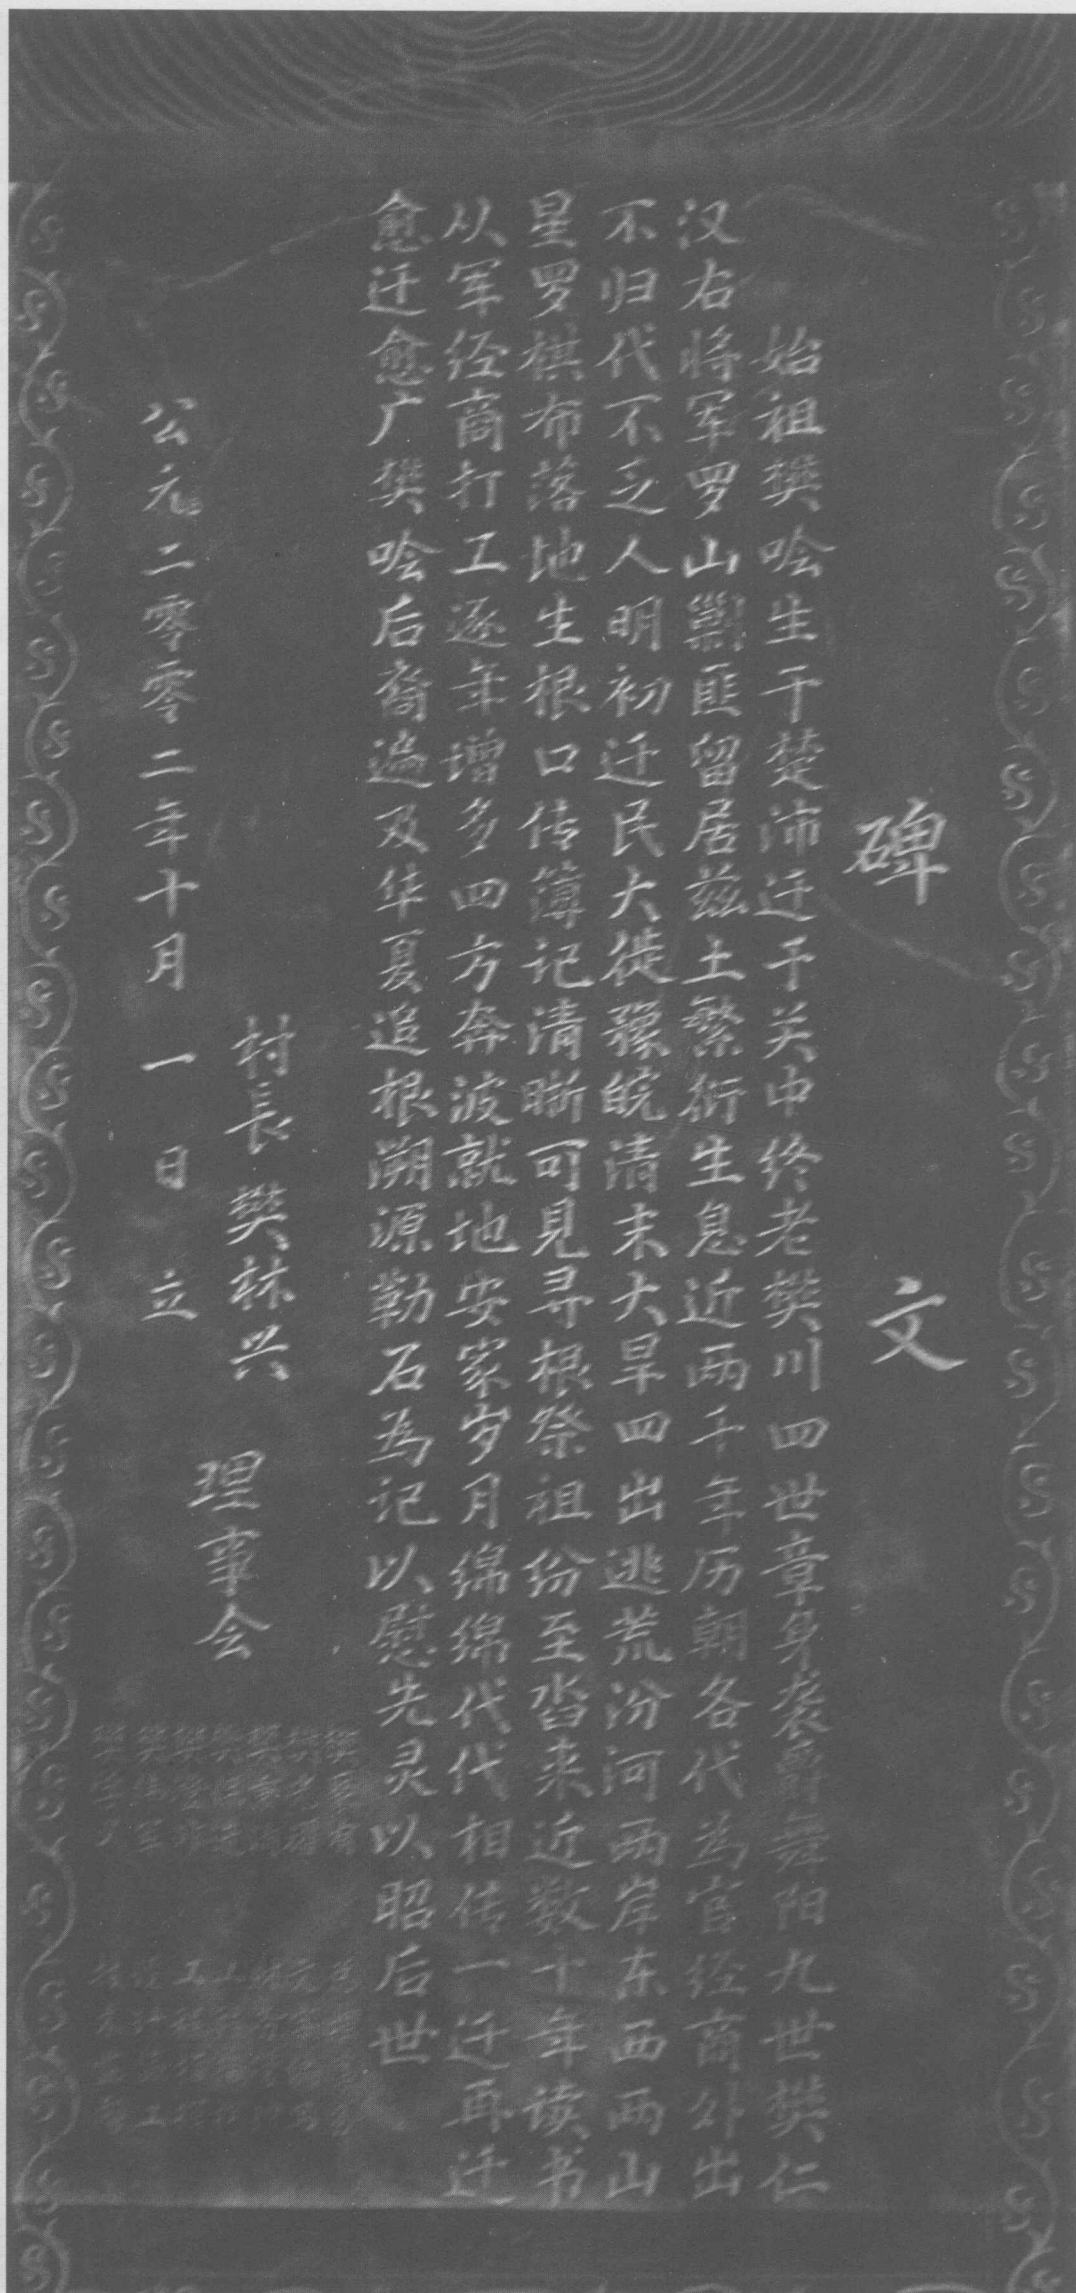 碑文
始祖樊哙生于楚沛迁于关中终老樊川四世章身袭爵舞阳九世樊仁
汉右将军罗山剿匪留居兹土繁衍生息近两千年历朝各代为官经商外出
不归代不乏人明初迁民大徙豫皖清末大旱四出逃荒汾河两岸东西两山
星罗棋布落地生根口传簿记清晰可見寻根祭祖纷至沓来近数十年读书
从军经商打工逐年增多四方奔波就地安家岁月绵绵代代相传一迁再迁
愈迁愈广樊哙后裔遍及华夏追根溯源勒石为记以慰先灵以昭后世
村長 樊林兴
理事会
公元二零零二年十月一日立